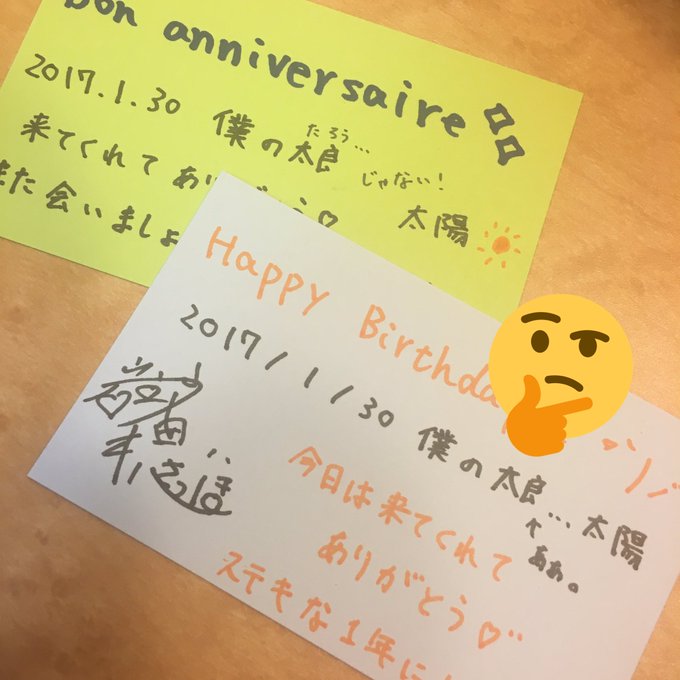 bon anniversaire
2017.1.30 僕の太良
たろう…
じゃない！
来てくれて あり
太陽
また会いましょ
Happy Birthda
2017/1/30 僕の太良…太陽
↑
ああ。
今日は来てくれて
ありがとう♡
ステキな1年に